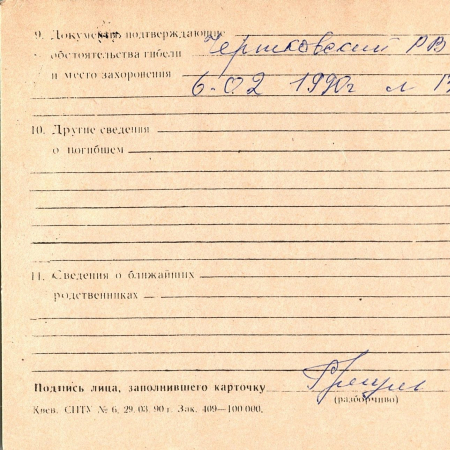 9. Документы подтверждающие
обстоятельства гибели Чертковский РВ
и место захоронения 6-02 1990г л
10. Другие сведения
о погибшем
11. Сведения о ближайших
родственниках
Подпись лица, заполнившего карточку
(разборчиво)
Киев. СПТУ № 6, 29. 03. 90 г. Зак. 409—100 000.